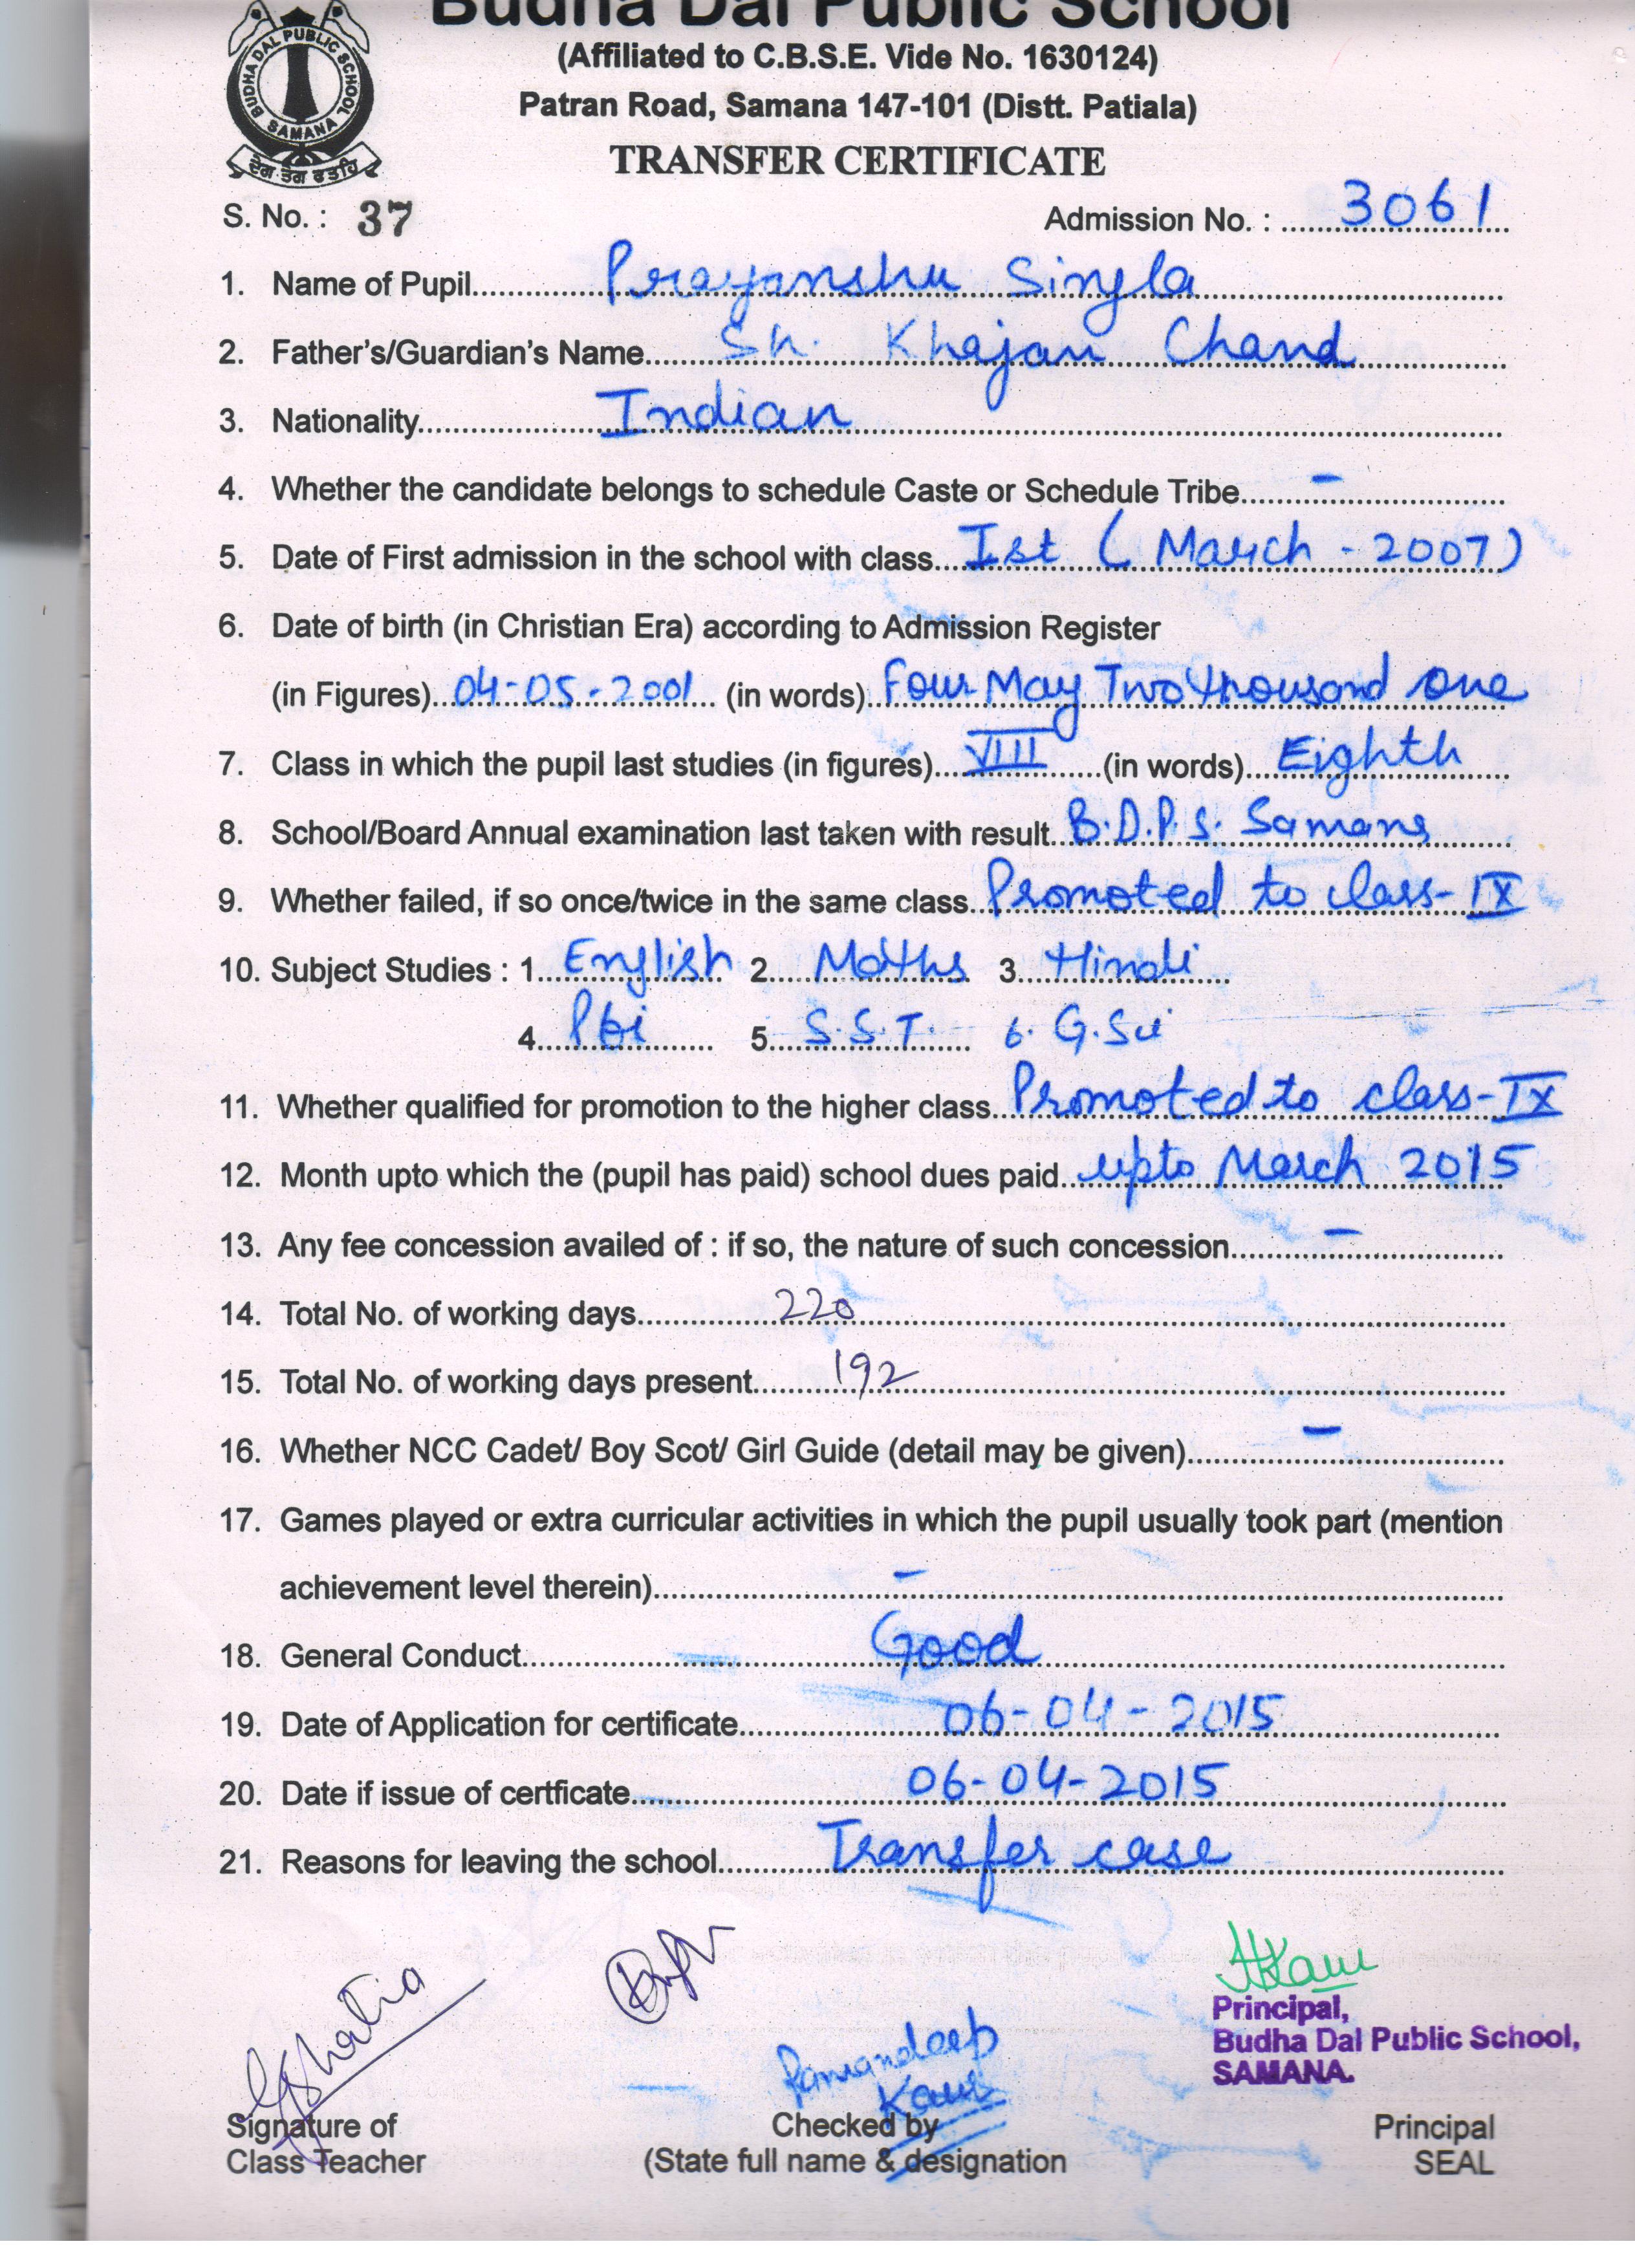 Budha Dal Public School
(Affiliated to C.B.S.E. Vide No. 1630124)
Patran Road, Samana 147-101 (Distt. Patiala)
BUDHA DAL PUBLIC SCHOOL
SAMANA
ਦੇਗ ਤੇਗ ਫਤਹਿ
TRANSFER CERTIFICATE
S. No. : 37 Admission No. : 3061
1. Name of Pupil Prayanshu Singla
2. Father's/Guardian's Name Sh. Khajan Chand
3. Nationality Indian
4. Whether the candidate belongs to schedule Caste or Schedule Tribe -
5. Date of First admission in the school with class Ist (March - 2007)
6. Date of birth (in Christian Era) according to Admission Register
(in Figures) 04-05-2001 (in words) Four May Two thousand one
7. Class in which the pupil last studies (in figures) VIII (in words) Eighth
8. School/Board Annual examination last taken with result B.D.P.S. Samana
9. Whether failed, if so once/twice in the same class Promoted to class-IX
10. Subject Studies : 1 English 2 Maths 3 Hindi
4 Pbi 5 S.S.T. 6. G.Sci
11. Whether qualified for promotion to the higher class Promoted to class-IX
12. Month upto which the (pupil has paid) school dues paid upto March 2015
13. Any fee concession availed of : if so, the nature of such concession -
14. Total No. of working days 220
15. Total No. of working days present 192
16. Whether NCC Cadet/ Boy Scot/ Girl Guide (detail may be given) -
17. Games played or extra curricular activities in which the pupil usually took part (mention
achievement level therein) -
18. General Conduct Good
19. Date of Application for certificate 06-04-2015
20. Date if issue of certficate 06-04-2015
21. Reasons for leaving the school Transfer case
Principal,
Budha Dal Public School,
SAMANA.
Kaur
Signature of Checked by Principal
Class Teacher (State full name & designation SEAL